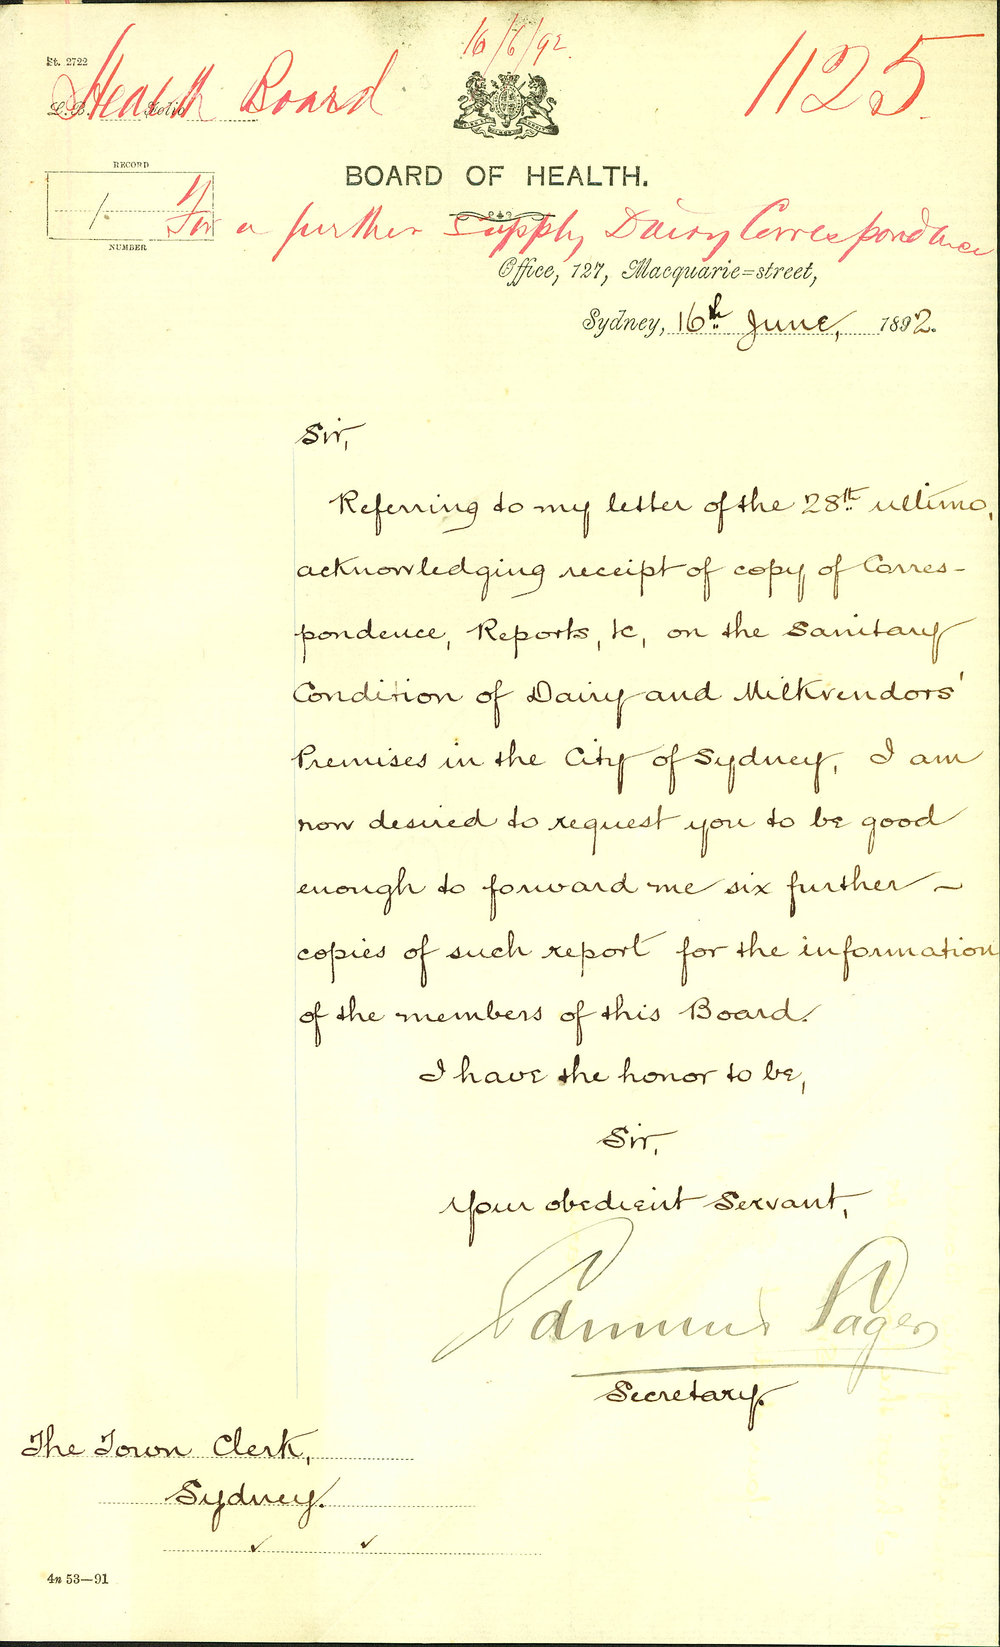 16/6/92.
St. 2722
Health Board
1125.
L. B. Folio
RECORD
BOARD OF HEALTH.
1.
For a further supply Dairy Correspondence
NUMBER
Office, 127, Macquarie=street,
Sydney, 16th June, 1892.
Sir,
Referring to my letter of the 28th ultimo,
acknowledging receipt of copy of Corres-
pondence, Reports, &c, on the Sanitary
Condition of Dairy and Milkvendors'
Premises in the City of Sydney, I am
now desired to request you to be good
enough to forward me six further
copies of such report for the information
of the members of this Board.
I have the honor to be,
Sir,
Your obedient Servant,
Edmund Sager
Secretary.
The Town Clerk,
Sydney.
4n 53—91